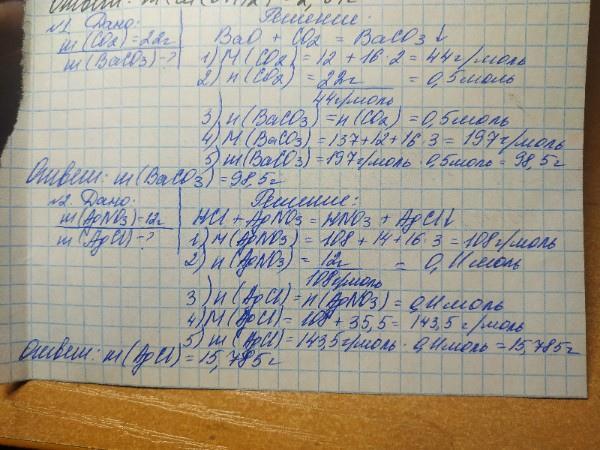 №1. Дано:
m(CO2)=22г
m(BaCO3)-?
Решение:
BaO + CO2 = BaCO3↓
1) M(CO2) = 12 + 16·2 = 44г/моль
2) n(CO2) = 22г = 0,5моль
44г/моль
3) n(BaCO3) = n(CO2) = 0,5моль
4) M(BaCO3) = 137+12+16·3 = 197г/моль
5) m(BaCO3) = 197г/моль · 0,5моль = 98,5г
Ответ: m(BaCO3) = 98,5г
№2. Дано:
m(AgNO3)=12г
m(AgCl)-?
Решение:
HCl + AgNO3 = HNO3 + AgCl↓
1) M(AgNO3) = 108 + 14 + 16·3 = 108г/моль
2) n(AgNO3) = 12г = 0,11моль
108г/моль
3) n(AgCl) = n(AgNO3) = 0,11моль
4) M(AgCl) = 108 + 35,5 = 143,5 г/моль
5) m(AgCl) = 143,5г/моль · 0,11моль = 15,785г
Ответ: m(AgCl) = 15,785г